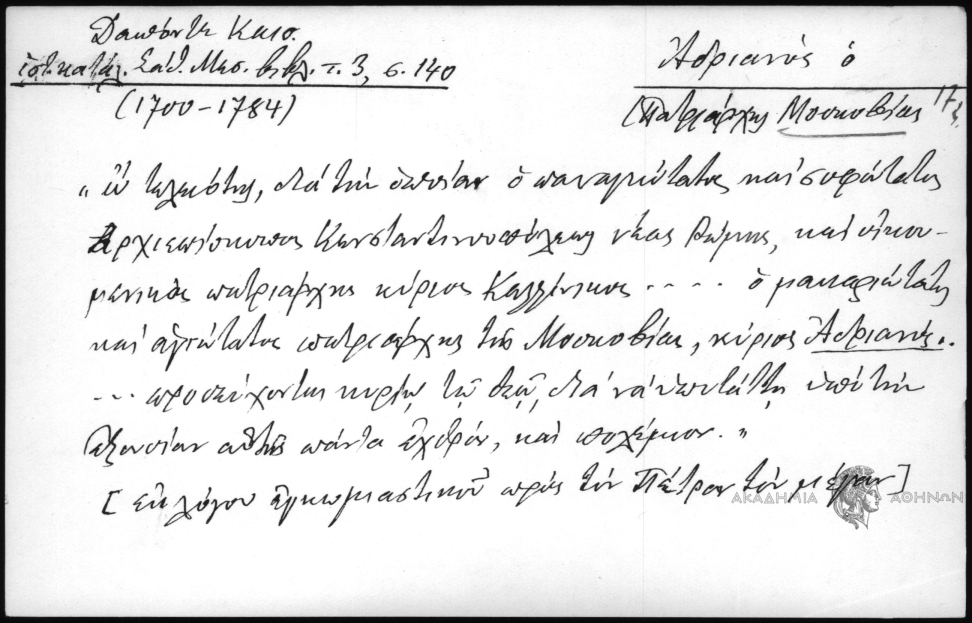 Δαπόντε Καισ.
ἱστ. κατάλ. Σάθ. Μεσ. βιβλ. τ. 3, σ. 140
(1700-1784)
Ἀδριανός ὁ
(Πατριάρχης Μοσκοβίας 17
"ἐν διά τήν ὁποίαν ὁ παναγιώτατος καί σοφώτατος
Ἀρχιεπίσκοπος Κωνσταντινουπόλεως νέας Ρώμης, καί οἰκου-
μενικός πατριάρχης κύριος Καλλίνικος .... ὁ μακαριώτατος
καί ἁγιώτατος πατριάρχης τῆς Μοσκοβίας, κύριος Ἀδριανός..
... προσεύχονται κυρίῳ τῷ θεῷ, διά νά ὑποτάττῃ ὑπό τήν
ἐξουσίαν αὐτῆς πάντα ἐχθρόν, καί πολέμιον."
[ ἐκ λόγου ἐγκωμιαστικοῦ πρός τόν Πέτρον τόν μέγαν]
ΑΚΑΔΗΜΙΑ ΑΘΗΝΩΝ